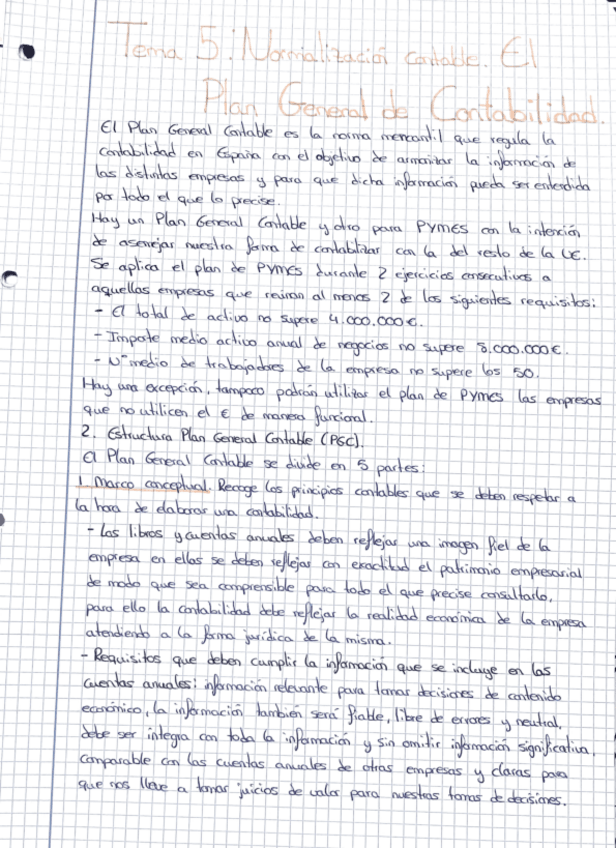 Tema 5: Normalización contable. El
Plan General de Contabilidad.
El Plan General Contable es la norma mercantil que regula la
contabilidad en España con el objetivo de armonizar la información de
las distintas empresas y para que dicha información pueda ser entendida
por todo el que lo precise.
Hay un Plan General Contable y otro para PYMES con la intención
de asemejar nuestra forma de contabilizar con la del resto de la UE.
Se aplica el plan de PYMES durante 2 ejercicios consecutivos a
aquellas empresas que reúnan al menos 2 de los siguientes requisitos:
- El total de activo no supere 4.000.000€.
- Importe medio activo anual de negocios no supere 8.000.000€.
- Nº medio de trabajadores de la empresa no supere los 50.
Hay una excepción, tampoco podrán utilizar el plan de PYMES las empresas
que no utilicen el € de manera funcional.
2. Estructura Plan General Contable (PGC).
El Plan General Contable se divide en 5 partes:
1. Marco conceptual. Recoge los principios contables que se deben respetar a
la hora de elaborar una contabilidad.
- Los libros y cuentas anuales deben reflejar una imagen fiel de la
empresa en ellos se deben reflejar con exactitud el patrimonio empresarial
de modo que sea comprensible para todo el que precise consultarlo,
para ello la contabilidad debe reflejar la realidad económica de la empresa
atendiendo a la forma jurídica de la misma.
- Requisitos que deben cumplir la información que se incluye en las
cuentas anuales: información relevante para tomar decisiones de contenido
económico, la información también será fiable, libre de errores y neutral,
debe ser íntegra con toda la información y sin omitir información significativa,
comparable con las cuentas anuales de otras empresas y claras para
que nos lleve a tomar juicios de valor para nuestras tomas de decisiones.